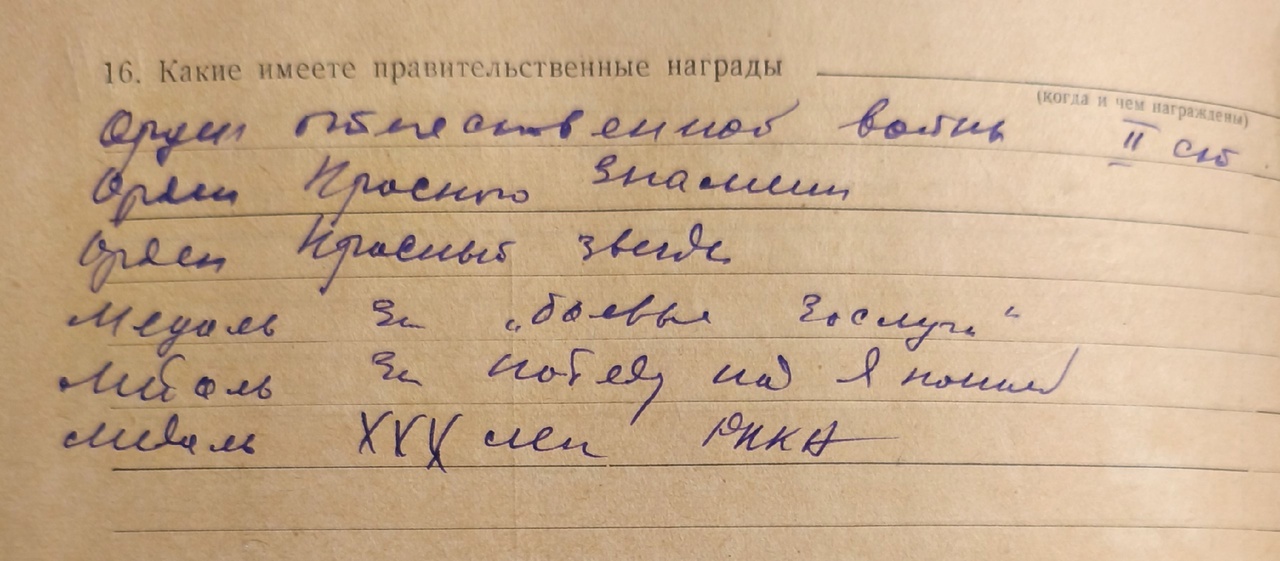 16. Какие имеете правительственные награды
(когда и чем награждены)
Орден отечественной войны II ст
Орден Красного Знамени
Орден Красный звезды
Медаль За „боевые заслуги“
Медаль За победу над Японией
Медаль XXX лет РККА